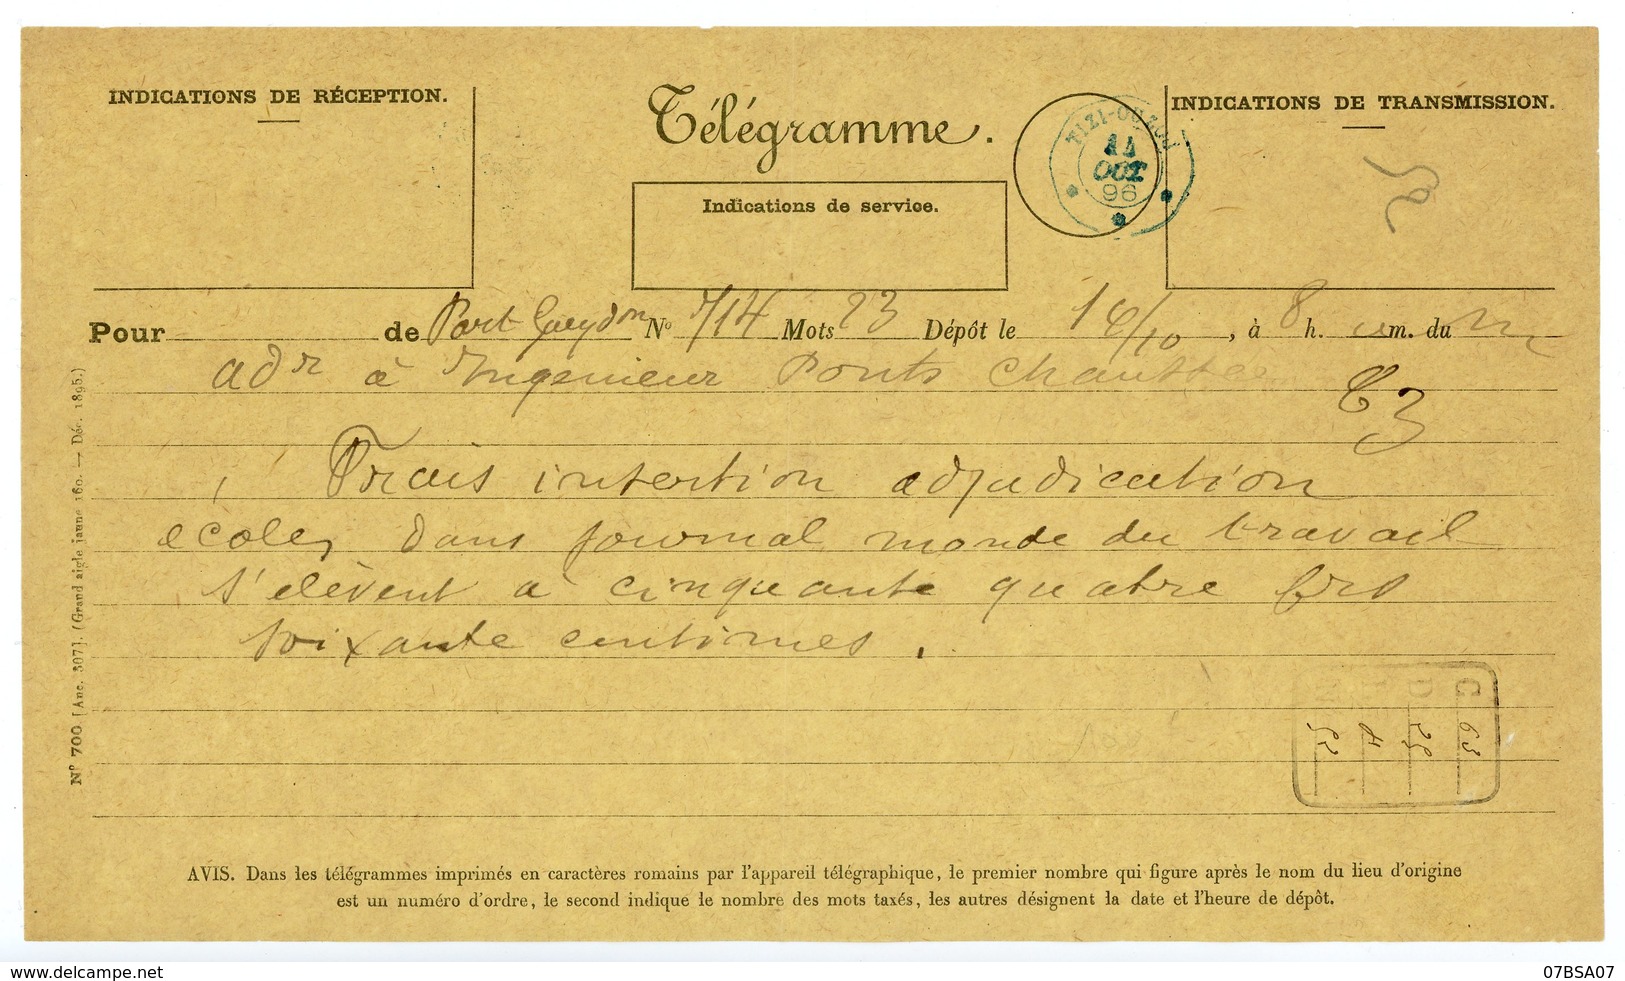 INDICATIONS DE RÉCEPTION.
Télégramme.
INDICATIONS DE TRANSMISSION.
TIZI-OUZOU
14
OCT
96
Indications de service.
Pour de Port Gueydon N° 714 Mots 23 Dépôt le 14/10, à 8 h. m. du m
adr à Ingenieur Ponts Chaussees
Frais insertion adjudication
ecoles dans journal monde du travail
s'elèvent a cinquante quatre frs
soixante centimes.
C
D
63
25
N° 700 [Anc. 307]. (Grand aigle jaune 160. — Déc. 1895.)
AVIS. Dans les télégrammes imprimés en caractères romains par l'appareil télégraphique, le premier nombre qui figure après le nom du lieu d'origine
est un numéro d'ordre, le second indique le nombre des mots taxés, les autres désignent la date et l'heure de dépôt.
www.delcampe.net
07BSA07